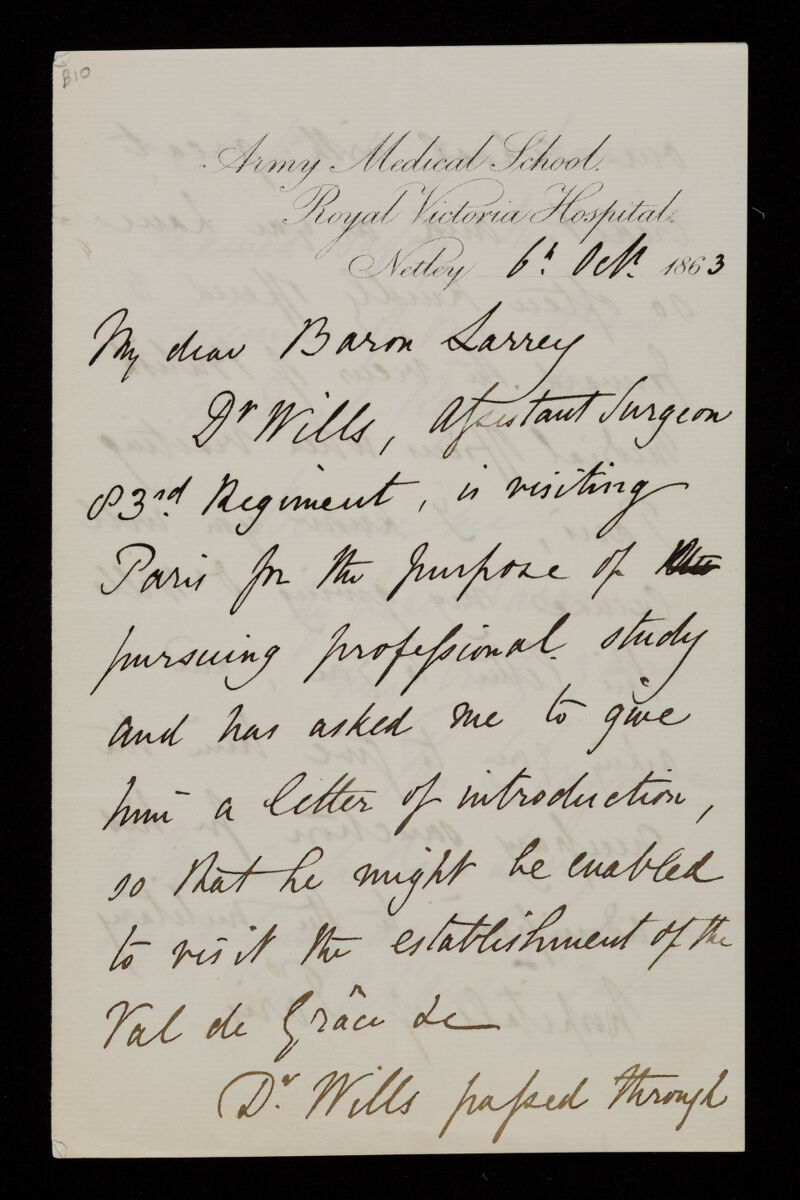 B10
Army Medical School.
Royal Victoria Hospital.
Netley 6th Octr. 1863
My dear Baron Larrey
Dr Wills, Assistant Surgeon
83rd. Regiment, is visiting
Paris for the purpose of
pursuing professional study
and has asked me to give
him a letter of introduction,
so that he might be enabled
to visit the establishment of the
Val de Grâce &c
Dr. Wills passed through